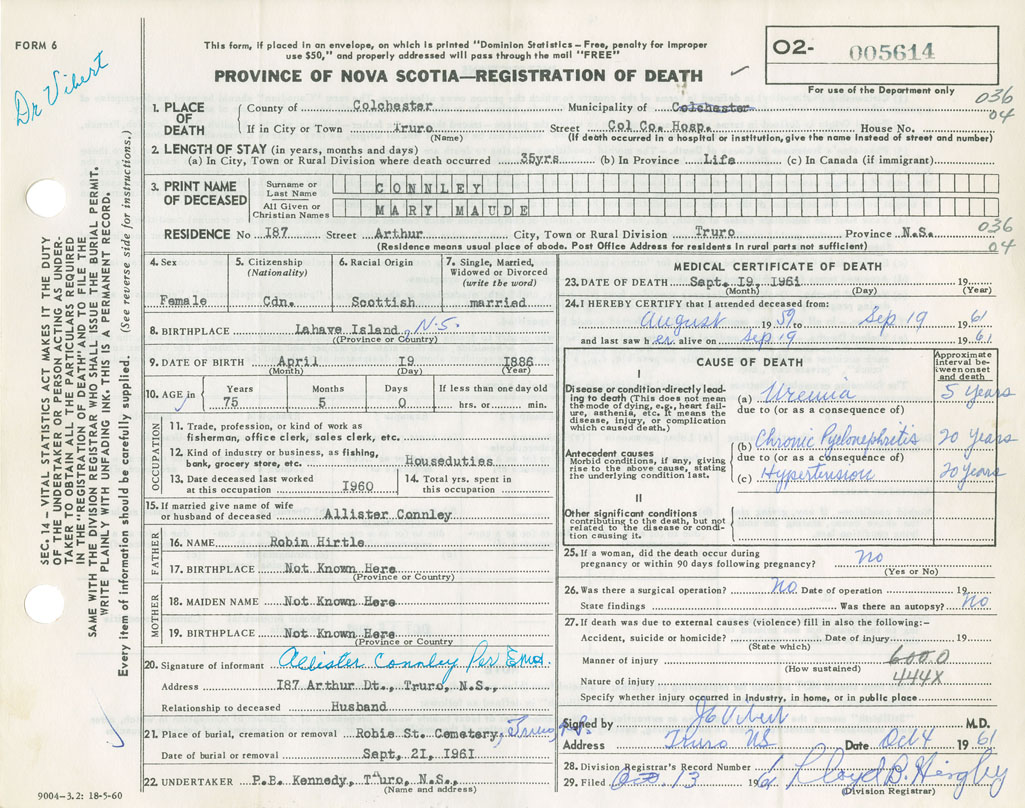 FORM 6
This form, if placed in an envelope, on which is printed "Dominion Statistics – Free, penalty for improper
use $50," and properly addressed will pass through the mail "FREE"
PROVINCE OF NOVA SCOTIA—REGISTRATION OF DEATH
O2- 005614
For use of the Department only
Dr Vibert
036
04
1. PLACE OF DEATH
County of Colchester Municipality of Colchester
If in City or Town Truro (Name) Street Col Co. Hosp. House No.
(If death occurred in hospital or institution, give the name instead of street and number)
2. LENGTH OF STAY (in years, months and days)
(a) In City, Town or Rural Division where death occurred 35yrs (b) In Province Life (c) In Canada (if immigrant)
3. PRINT NAME OF DECEASED
Surname or Last Name CONNLEY
All Given or Christian Names MARY MAUDE
RESIDENCE No I87 Street Arthur City, Town or Rural Division Truro Province N.S.
(Residence means usual place of abode. Post Office Address for residents in rural parts not sufficient)
036
04
4. Sex
Female
5. Citizenship (Nationality)
Cdn.
6. Racial Origin
Scottish
7. Single, Married, Widowed or Divorced (write the word)
married
8. BIRTHPLACE Lahave Island, N.S.
(Province or Country)
9. DATE OF BIRTH April I9 I886
(Month) (Day) (Year)
10. AGE in Years Months Days If less than one day old
75 5 0 hrs. or min.
OCCUPATION
11. Trade, profession, or kind of work as
fisherman, office clerk, sales clerk, etc.
12. Kind of industry or business, as fishing,
bank, grocery store, etc. Houseduties
13. Date deceased last worked
at this occupation I960
14. Total yrs. spent in
this occupation
15. If married give name of wife
or husband of deceased Allister Connley
FATHER
16. NAME Robin Hirtle
17. BIRTHPLACE Not Known Here
(Province or Country)
MOTHER
18. MAIDEN NAME Not Known Here
19. BIRTHPLACE Not Known Here
(Province or Country
20. Signature of informant Allister Connley Per
Address I87 Arthur Dt., Truro, N.S.,
Relationship to deceased Husband
21. Place of burial, cremation or removal Robie St. Cemetery, Truro, N.S.
Date of burial or removal Sept. 21, I961
22. UNDERTAKER P.B. Kennedy, Truro, N.S.,
(Name and address)
9004-3.2: 18-5-60
MEDICAL CERTIFICATE OF DEATH
23. DATE OF DEATH Sept. I9, I96I
(Month) (Day) (Year)
24. I HEREBY CERTIFY that I attended deceased from:
August 1959 to Sep 19 1961
and last saw h er alive on Sep 19 1961
CAUSE OF DEATH
Approximate interval between onset and death
I
Disease or condition directly leading to death (This does not mean the mode of dying, e.g., heart failure, asthenia, etc. It means the disease, injury, or complication which caused death.)
(a) Uremia 5 Years
due to (or as a consequence of)
(b) Chronic Pyelonephritis 20 Years
due to (or as a consequence of)
Antecedent causes
Morbid conditions, if any, giving rise to the above cause, stating the underlying condition last.
(c) Hypertension 20 Years
II
Other significant conditions
contributing to the death, but not related to the disease or condition causing it.
25. If a woman, did the death occur during
pregnancy or within 90 days following pregnancy? No
(Yes or No)
26. Was there a surgical operation? No Date of operation 19
State findings Was there an autopsy? No
27. If death was due to external causes (violence) fill in also the following:-
Accident, suicide or homicide? Date of injury 19
(State which)
Manner of injury 600.0
(How sustained)
Nature of injury 444X
Specify whether injury occurred in industry, in home, or in public place
Signed by Vibert M.D.
Address Truro NS Date Oct 4 1961
28. Division Registrar's Record Number
29. Filed 13 Lloyd B. Hingley
(Division Registrar)
SEC. 14 – VITAL STATISTICS ACT MAKES IT THE DUTY
OF THE UNDERTAKER OR PERSON ACTING AS UNDER-
TAKER TO OBTAIN ALL THE PARTICULARS REQUIRED
IN THE "REGISTRATION OF DEATH" AND TO FILE THE
SAME WITH THE DIVISION REGISTRAR WHO SHALL ISSUE THE BURIAL PERMIT.
WRITE PLAINLY WITH UNFADING INK. THIS IS A PERMANENT RECORD.
Every item of information should be carefully supplied. (See reverse side for instructions.)